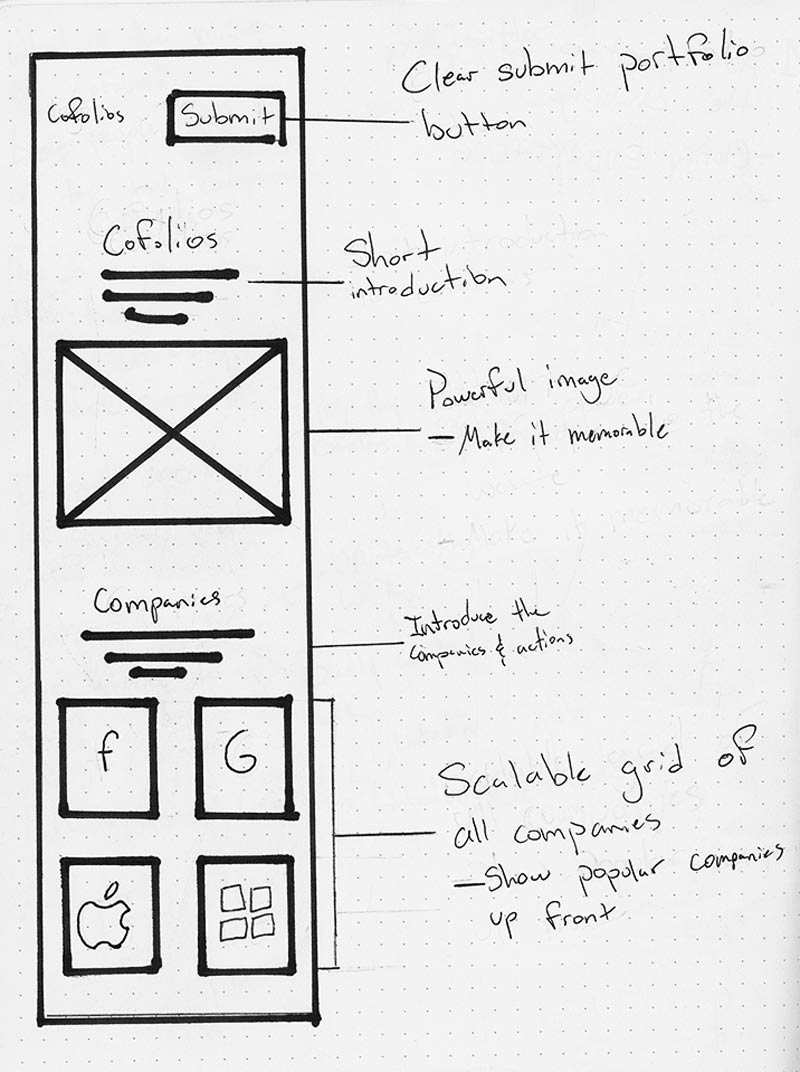 Cofolios
Submit
Clear submit portfolio
button
Cofolios
Short
introduction
Powerful image
– Make it memorable
Companies
Introduce the
Companies & actions
f
G
Scalable grid of
all companies
– Show popular companies
up front